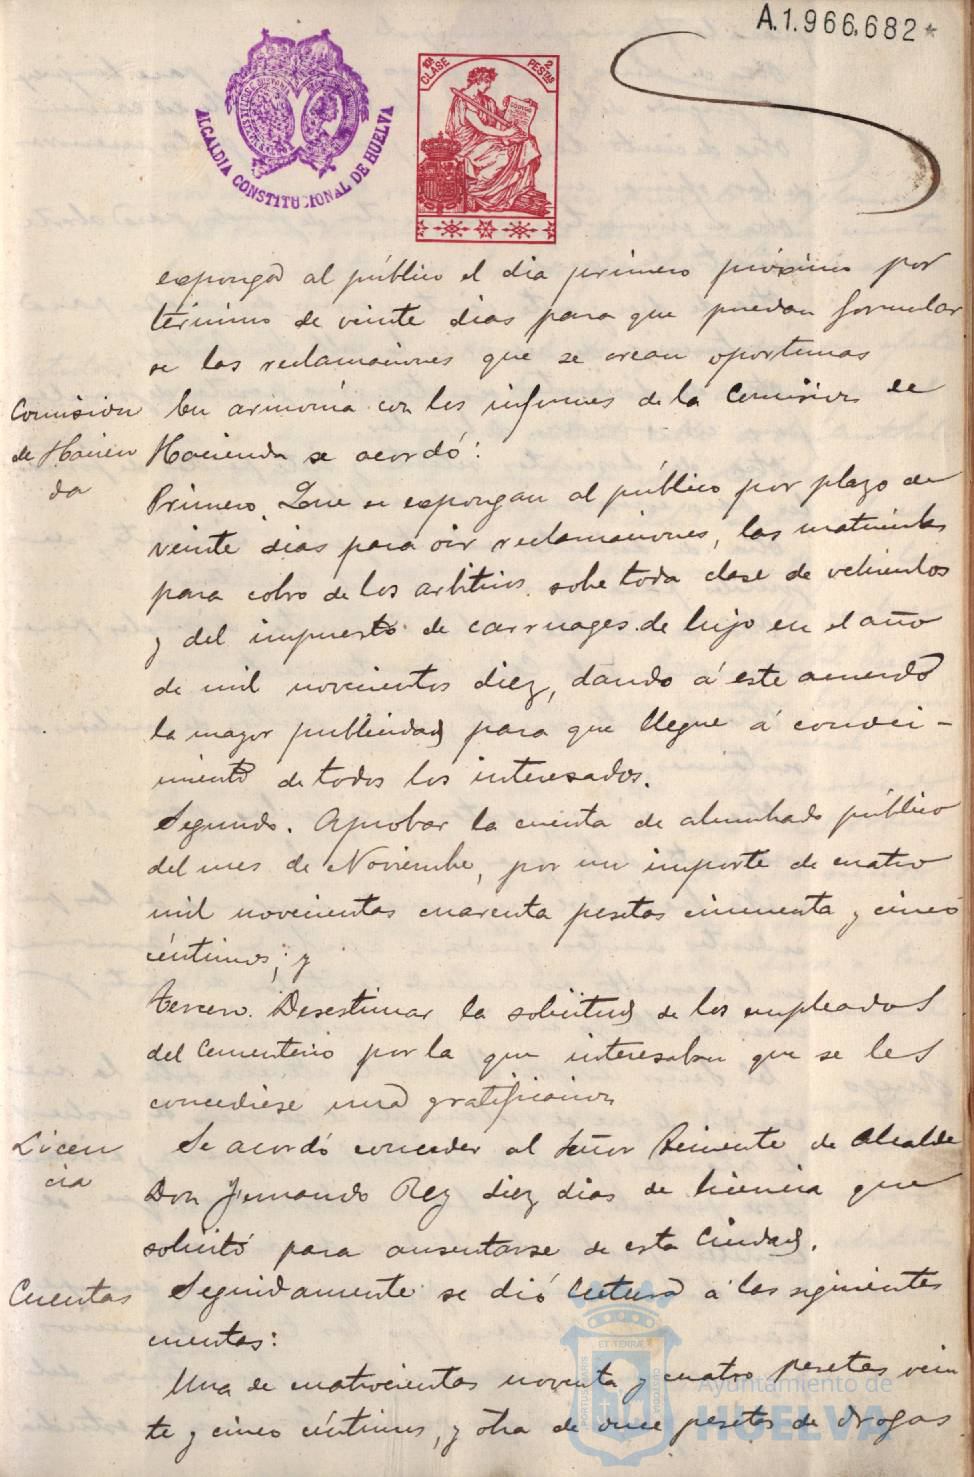 A.1.966.682*
ALCALDIA CONSTITUCIONAL DE HUELVA
10ª CLASE
2 PESTAS
exponga al público el dia primero próximo por
término de veinte dias para que puedan formular
se las reclamaciones que se crean oportunas
Comision de Hacienda
En armonía con los informes de la Comision de
Hacienda se acordó:
Primero. Que se expongan al público por plazo de
veinte dias para oir reclamaciones, las matriculas
para cobro de los arbitrios sobre toda clase de vehiculos
y del impuesto de carruages de lujo en el año
de mil novecientos diez, dando á este acuerdo
la mayor publicidad para que llegue á conoci-
miento de todos los interesados.
Segundo. Aprobar la cuenta de alumbrado público
del mes de Noviembre, por un importe de cuatro
mil novecientas cuarenta pesetas cincuenta y cinco
céntimos; y
tercero. Desestimar la solicitud de los empleados
del Cementerio por la que interesaban que se les
concediese una gratificacion
Licencia
Se acordó conceder al Señor Teniente de Alcalde
Don Fernando Rey diez dias de licencia que
solicitó para ausentarse de esta Ciudad.
Cuentas
Seguidamente se dió lectura á las siguientes
cuentas:
Una de cuatrocientas noventa y cuatro pesetas vein
te y cinco céntimos, y otra de once pesetas de drogas
Ayuntamiento de
HUELVA